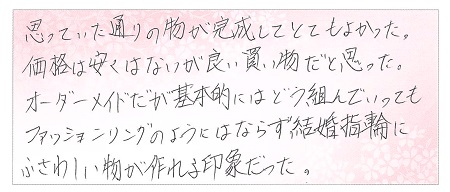 思っていた通りの物が完成してとてもよかった。
価格は安くはないが良い買い物だと思った。
オーダーメイドだが基本的にはどう組んでいっても
ファッションリングのようにはならず結婚指輪に
ふさわしい物が作れる印象だった。